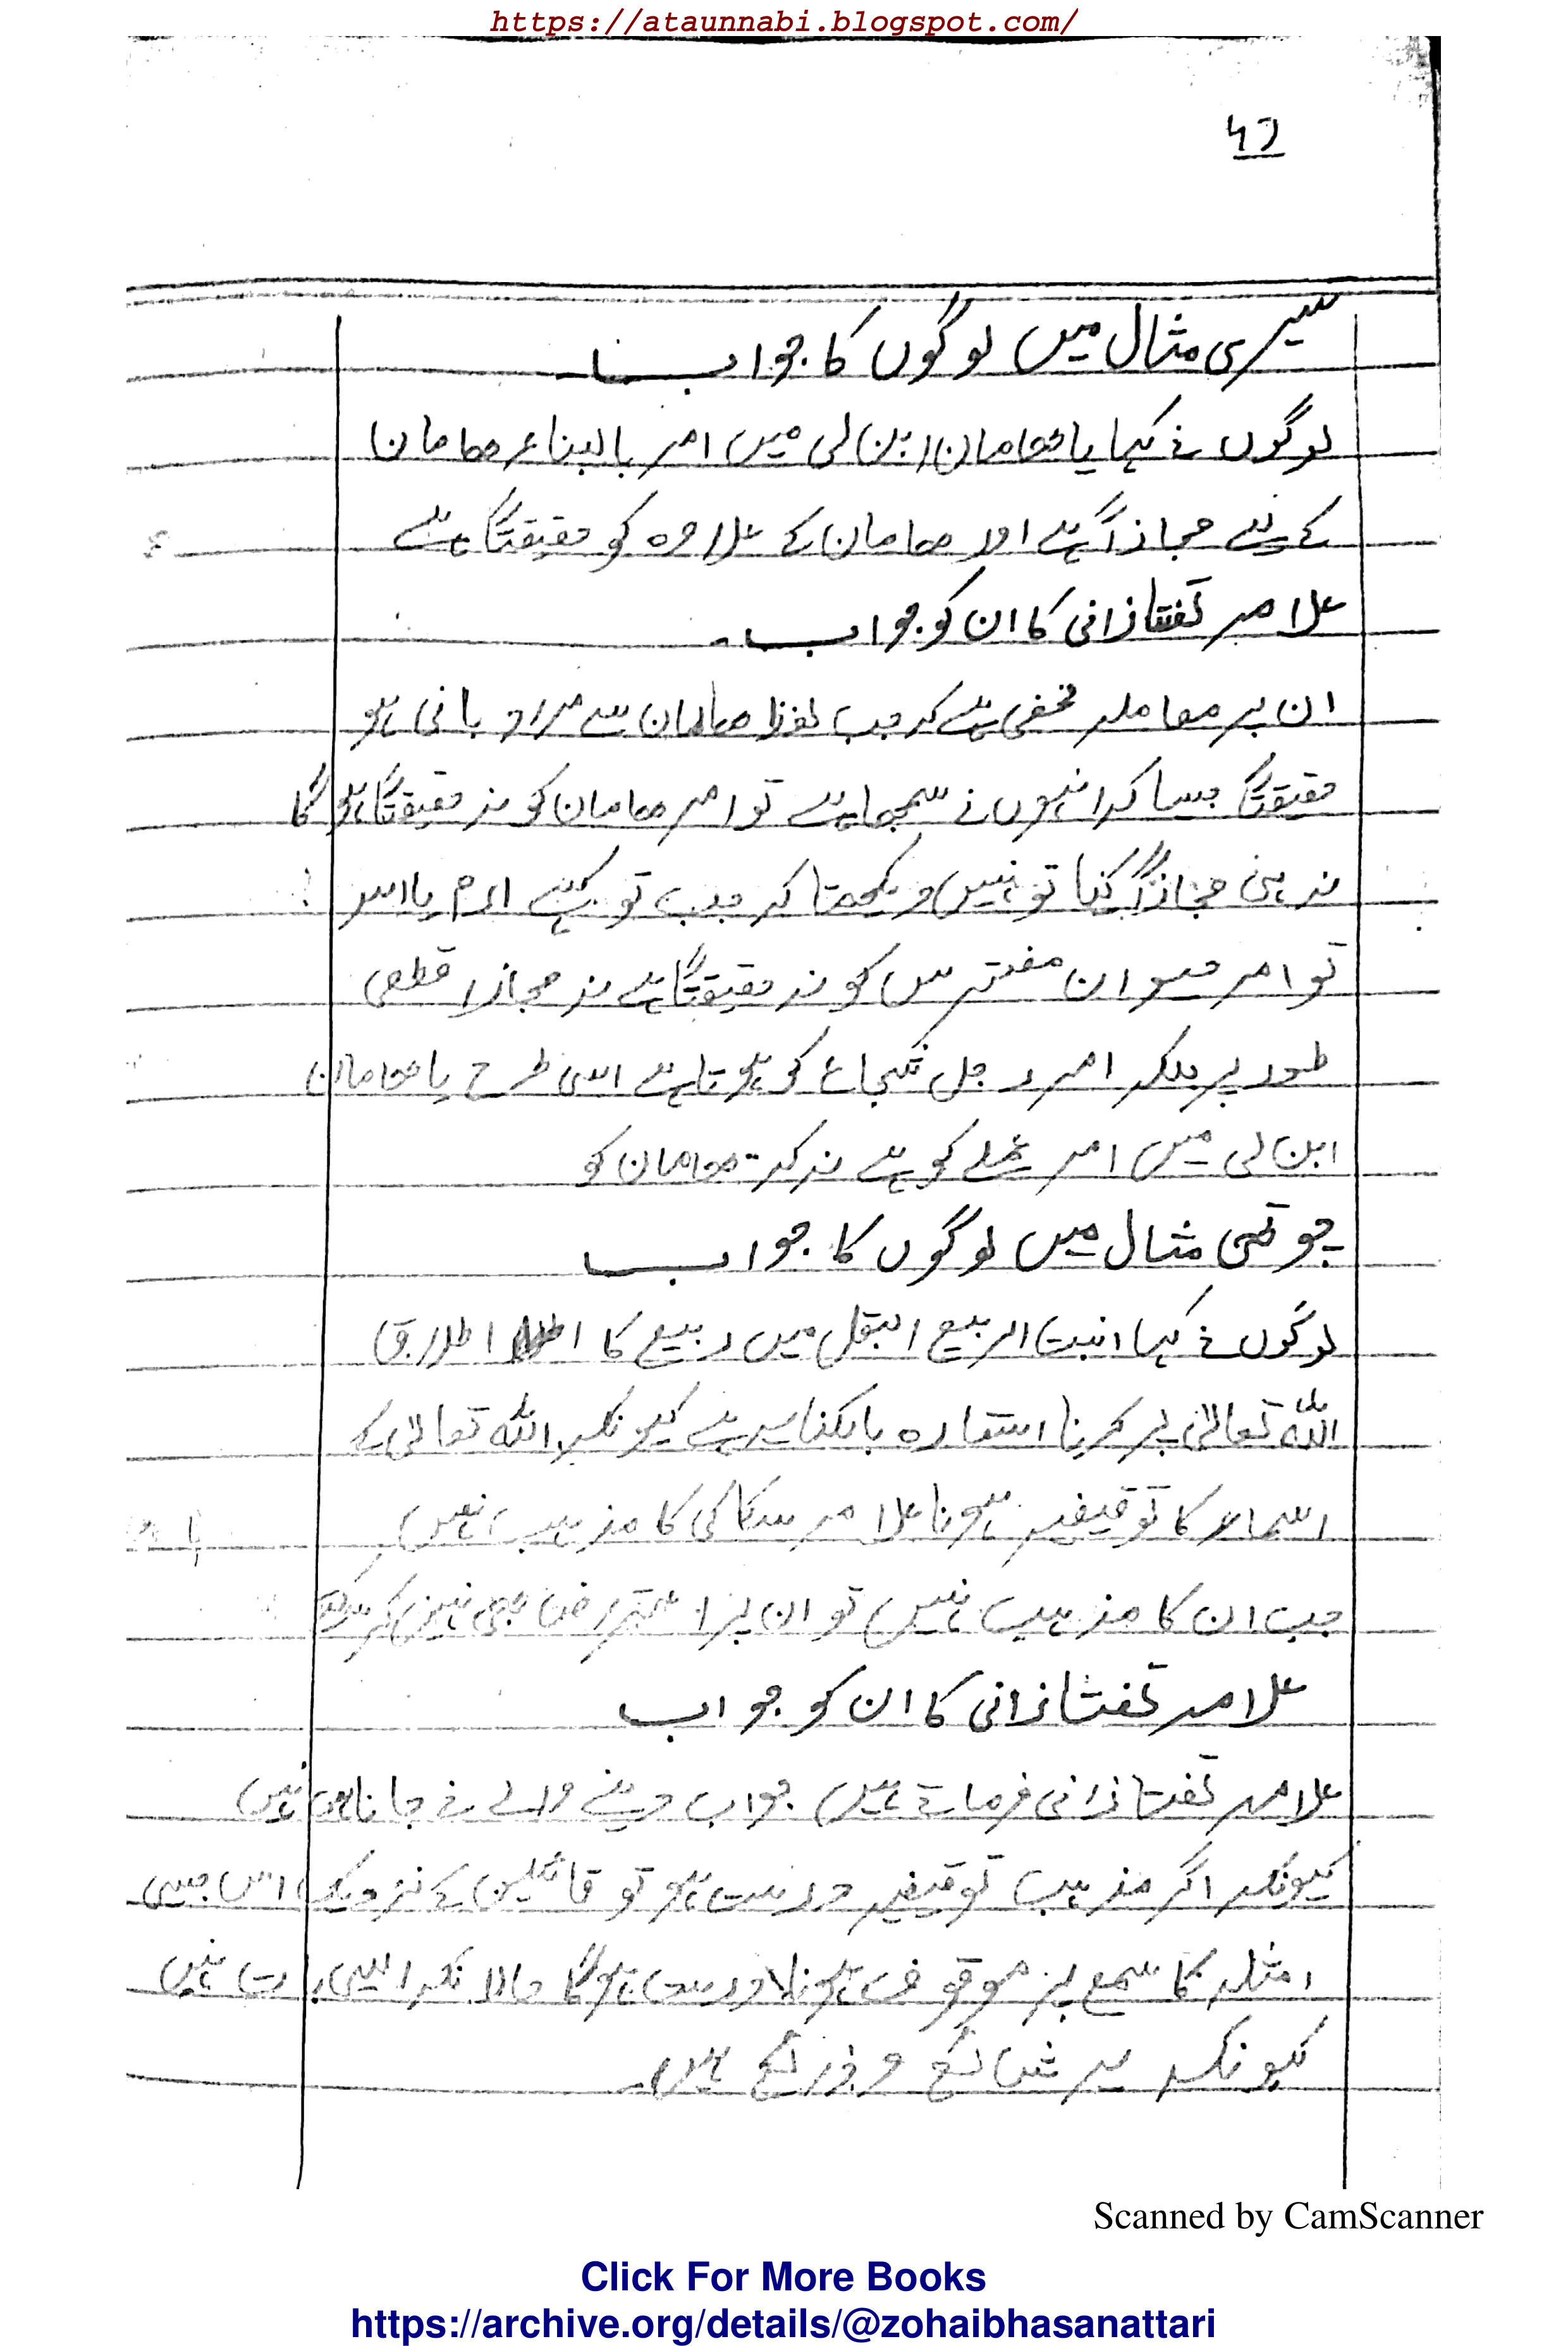 https://ataunnabi.blogspot.com/
47
تیسری مثال میں لوگوں کا جواب۔
لوگوں نے کہا یا ھامان ابن لی میں امر بالبناء ھامان
کے لئے مجازاً ہے اور ھامان کے علاوہ کو حقیقتاً ہے
علامہ تفتازانی کا ان کو جواب۔
ان پر معاملہ مخفی ہے کہ جب لفظ ھامان سے مراد بانی ہو
حقیقتاً جیسا کہ انہوں نے سمجھا ہے تو امر ھامان کو نہ حقیقتاً ہو گا
نہ ہی مجازاً کیا تو نہیں دیکھتا کہ جب تو کہے ارم یا اسد
تو امر حیوان مفترس کو نہ حقیقتاً ہے نہ مجازا قطعی
طور پر بلکہ امر رجل شجاع کو ہوتا ہے اسی طرح یا ھامان
ابن لی میں امر عملے کو ہے نہ کہ ھامان کو
چوتھی مثال میں لوگوں کا جواب
لوگوں نے کہا انبت الربیع البقل میں ربیع کا اطلاق
اللہ تعالیٰ پر کرنا استعارہ بالکنایہ ہے کیونکہ اللہ تعالیٰ کے
اسماء کا توقیفیہ ہونا علامہ سکاکی کا مذہب نہیں
جب ان کا مذہب نہیں تو ان پر اعتراض بھی نہیں کر سکتے
علامہ تفتازانی کا ان کو جواب
علامہ تفتازانی فرماتے ہیں جواب دینے والے نے جانا ہی نہیں
کیونکہ اگر مذہب توقیفیہ درست ہو تو قائلین کے نزدیک اس جیسی
امثلہ کا سمع پر موقوف ہونا درست ہو گا حالانکہ ایسی بات نہیں
کیونکہ یہ شائع و ذائع ہے
Scanned by CamScanner
Click For More Books
https://archive.org/details/@zohaibhasanattari